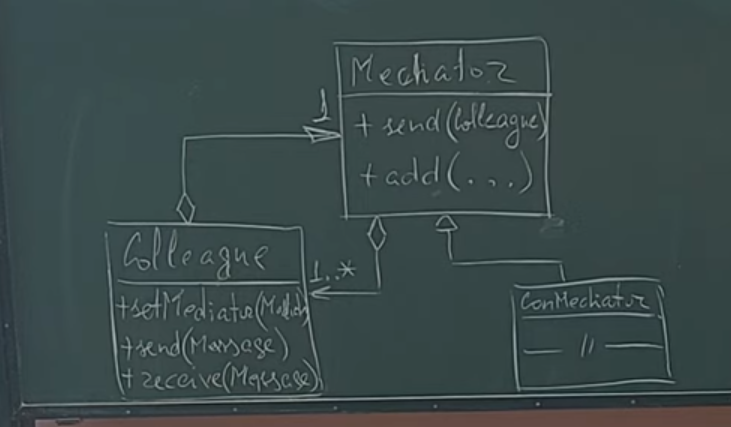 Mediator
+ send(Colleague)
+ add(...)
1
Colleague
+setMediator(
+send(Message)
+receive(Message)
1..*
ConMediator
— // —